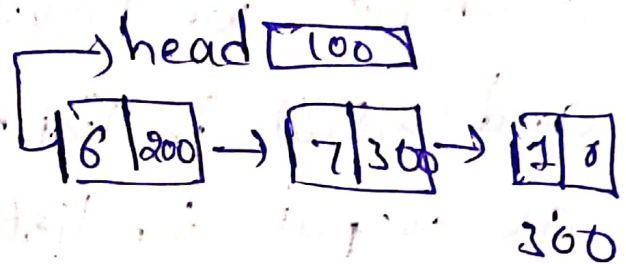 head 100
6 200 → 7 300 → 1 0
300